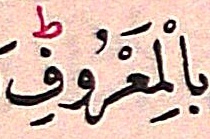 بِالْمَعْرُوفِ ؕ